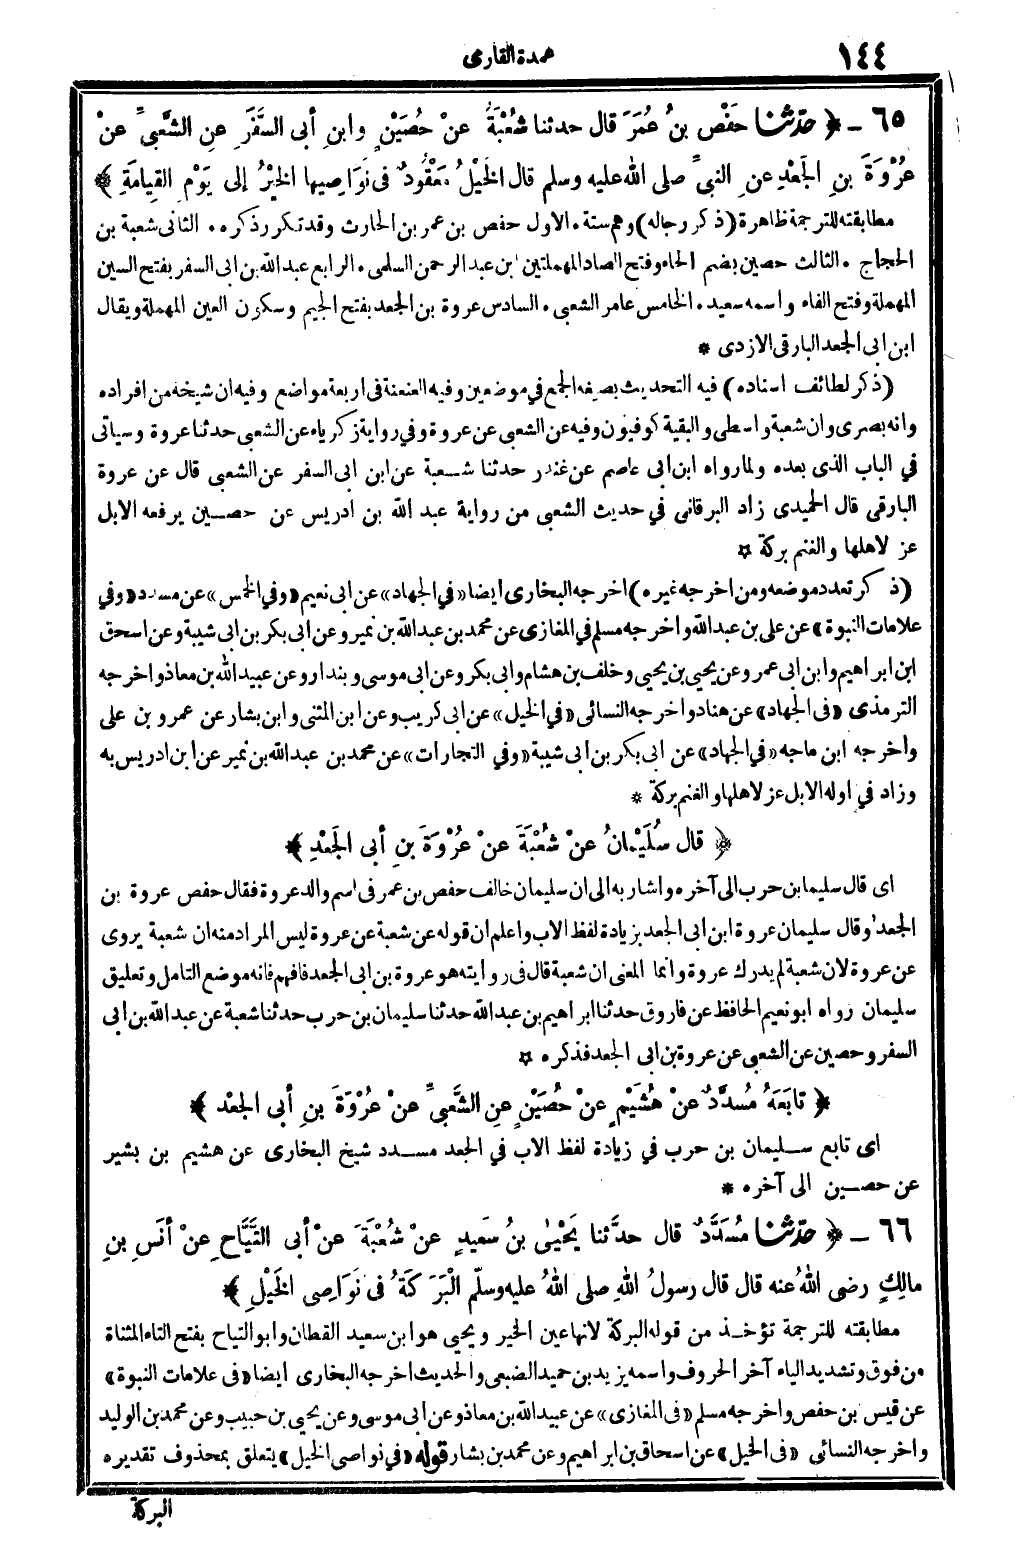 ١٤٤
عمدة القارى
٦٥ ـ ﴿ حَدَّثَنَا حَفْصُ بنُ عُمَرَ قال حدثنا شُعْبَةُ عنْ حُصَيْنٍ وابنِ أبى السَّفَرِ عنِ الشَّعْبِيِّ عنْ
عُرْوَةَ بنِ الجَعْدِ عنِ النبيِّ صلى الله عليه وسلم قال الخَيْلُ مَعْقُودٌ فى نَوَاصِيها الخَيْرُ إلى يَوْمِ القِيامَةِ ﴾
مطابقته للترجمة ظاهرة (ذكر رجاله) وهم ستة . الاول حفص بن عمر بن الحارث وقد تكرر ذكره . الثانى شعبة بن
الحجاج . الثالث حصين بضم الحاء وفتح الصاد المهملتين ابن عبد الرحمن السلمى . الرابع عبد الله بن ابى السفر بفتح السين
المهملة وفتح الفاء واسمه سعيد . الخامس عامر الشعبى . السادس عروة بن الجعد بفتح الجيم وسكون العين المهملة ويقال
ابن ابى الجعد البارقى الازدى *
(ذكر لطائف اسناده) فيه التحديث بصيغه الجمع في موضعين وفيه العنعنة فى اربعة مواضع وفيه ان شيخه من افراده
وانه بصرى وان شعبة واسطى والبقية كوفيون وفيه عن الشعبى عن عروة وفي رواية زكرياء عن الشعبى حدثنا عروة وسياتى
في الباب الذى بعده ولما رواه ابن ابى عاصم عن غندر حدثنا شعبة عن ابن ابى السفر عن الشعبى قال عن عروة
البارقى قال الحميدى زاد البرقانى في حديث الشعبى من رواية عبد الله بن ادريس عن حصين يرفعه الابل
عز لاهلها والغنم بركة *
(ذكر تعدد موضعه ومن اخرجه غيره) اخرجه البخارى ايضا «في الجهاد» عن ابى نعيم «وفي الخمس» عن مسدد «وفي
علامات النبوة» عن على بن عبد الله واخرجه مسلم في المغازى عن محمد بن عبد الله بن نمير وعن ابى بكر بن ابى شيبة وعن اسحق
ابن ابراهيم وابن ابى عمر وعن يحيى بن يحيى وخلف بن هشام وابى بكر وعن ابى موسى وبندار وعن عبيد الله بن معاذ واخرجه
الترمذى «فى الجهاد» عن هناد واخرجه النسائى «في الخيل» عن ابى كريب وعن ابن المثنى وابن بشار عن عمرو بن على
واخرجه ابن ماجه «في الجهاد» عن ابى بكر بن ابى شيبة «وفي التجارات» عن محمد بن عبد الله بن نمير عن ابن ادريس به
وزاد في اوله الابل عز لاهلها والغنم بركة *
﴿ قال سُلَيْمانُ عنْ شُعْبَةَ عنْ عُرْوَةَ بنِ أبى الجَعْدِ ﴾
اى قال سليما بن حرب الى آخره واشار به الى ان سليمان خالف حفص بن عمر فى اسم والد عروة فقال حفص عروة بن
الجعد وقال سليمان عروة ابن ابى الجعد بزيادة لفظ الاب واعلم ان قوله عن شعبة عن عروة ليس المراد منه ان شعبة يروى
عن عروة لان شعبة لم يدرك عروة وانما المعنى ان شعبة قال فى روايته هو عروة بن ابى الجعد فافهم فانه موضع التامل وتعليق
سليمان رواه ابو نعيم الحافظ عن فاروق حدثنا ابراهيم بن عبد الله حدثنا سليمان بن حرب حدثنا شعبة عن عبد الله بن ابى
السفر وحصين عن الشعبى عن عروة بن ابى الجعد فذكره *
﴿ تابَعَهُ مُسَدَّدٌ عنْ هُشَيْمٍ عنْ حُصَيْنٍ عنِ الشَّعْبِيِّ عنْ عُرْوَةَ بنِ أبى الجَعْد ﴾
اى تابع سليمان بن حرب في زيادة لفظ الاب في الجعد مسدد شيخ البخارى عن هشيم بن بشير
عن حصين الى آخره *
٦٦ ـ ﴿ حَدَّثَنَا مُسَدَّدٌ قال حدَّثنا يَحْيَى بنُ سَعِيدٍ عنْ شُعْبَةَ عنْ أبى التَّيَّاحِ عنْ أنَسِ بنِ
مالِكٍ رضى اللهُ عنه قال قال رسولُ اللهِ صلى اللهُ عليه وسلّم الْبَرَكَةُ فى نَوَاصِى الخَيْلِ ﴾
مطابقته للترجمة تؤخذ من قوله البركة لانها عين الخير ويحيى هو ابن سعيد القطان وابو التياح بفتح التاء المثناة
من فوق وتشديد الياء آخر الحروف واسمه يزيد بن حميد الضبعى والحديث اخرجه البخارى ايضا «فى علامات النبوة»
عن قيس بن حفص واخرجه مسلم «فى المغازى» عن عبيد الله بن معاذ وعن ابى موسى وعن يحيى بن حبيب وعن محمد بن الوليد
واخرجه النسائى «فى الخيل» عن اسحاق بن ابراهيم وعن محمد بن بشار قوله «في نواصى الخيل» يتعلق بمحذوف تقديره
البركة